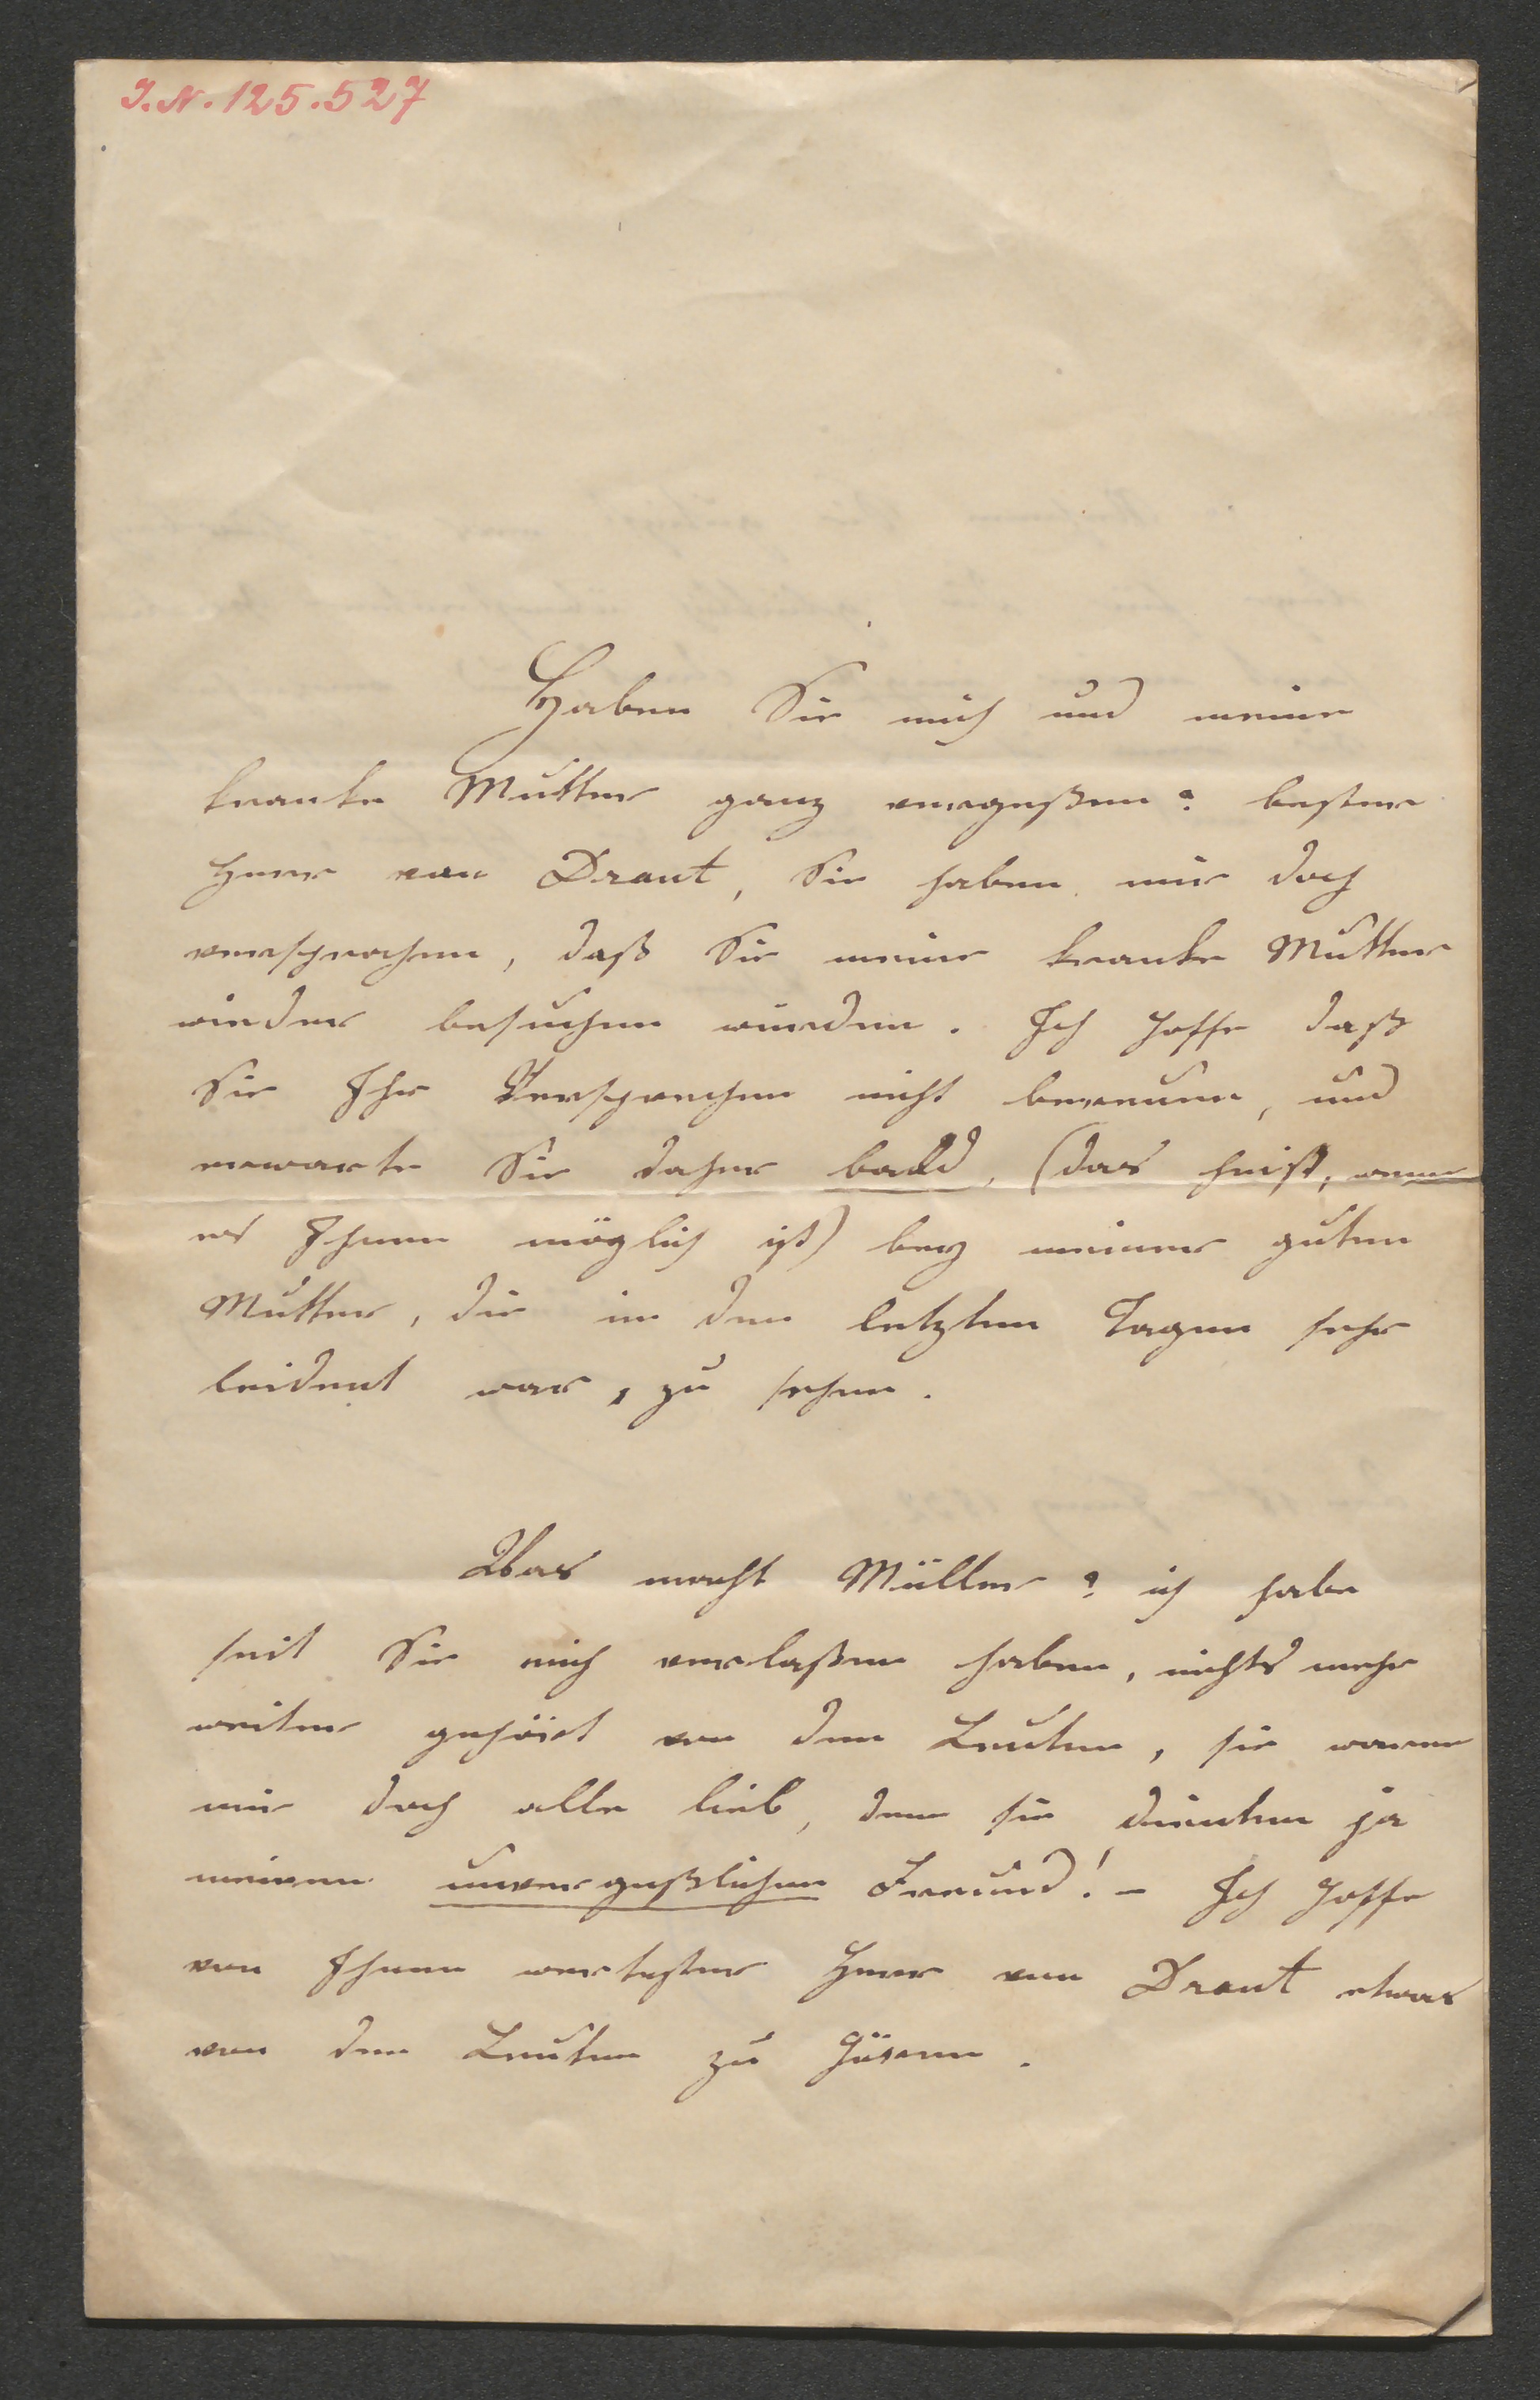 I.N. 125.527
Haben Sie mich und meine
kranke Mutter ganz vergeßen? bester
Herr von Draut, Sie haben mir doch
versprochen, daß Sie meine kranke Mutter
wieder besuchen würden. Ich hoffe daß
Sie Ihr Versprechen nicht bereuen, und
erwarte Sie daher bald, (das heißt, wenn
es Ihnen möglich ist) bey meiner guten
Mutter, die in den letzten Tagen sehr
leident war, zu sehen.
Was macht Müller? ich habe
seit Sie mich verlaßen haben, nichts mehr
weiter gehört von den Leuten, sie waren
mir doch alle lieb, denn sie dienten ja
meinen unvergeßlichen Freund! – Ich hoffe
von Ihnen wertester Herr von Draut etwas
von den Leuten zu hören.